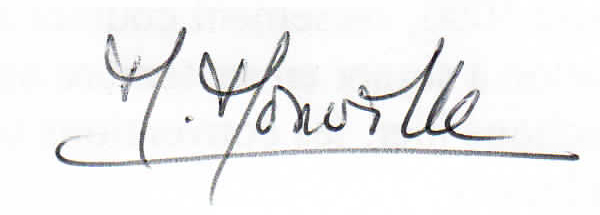 M. Monville